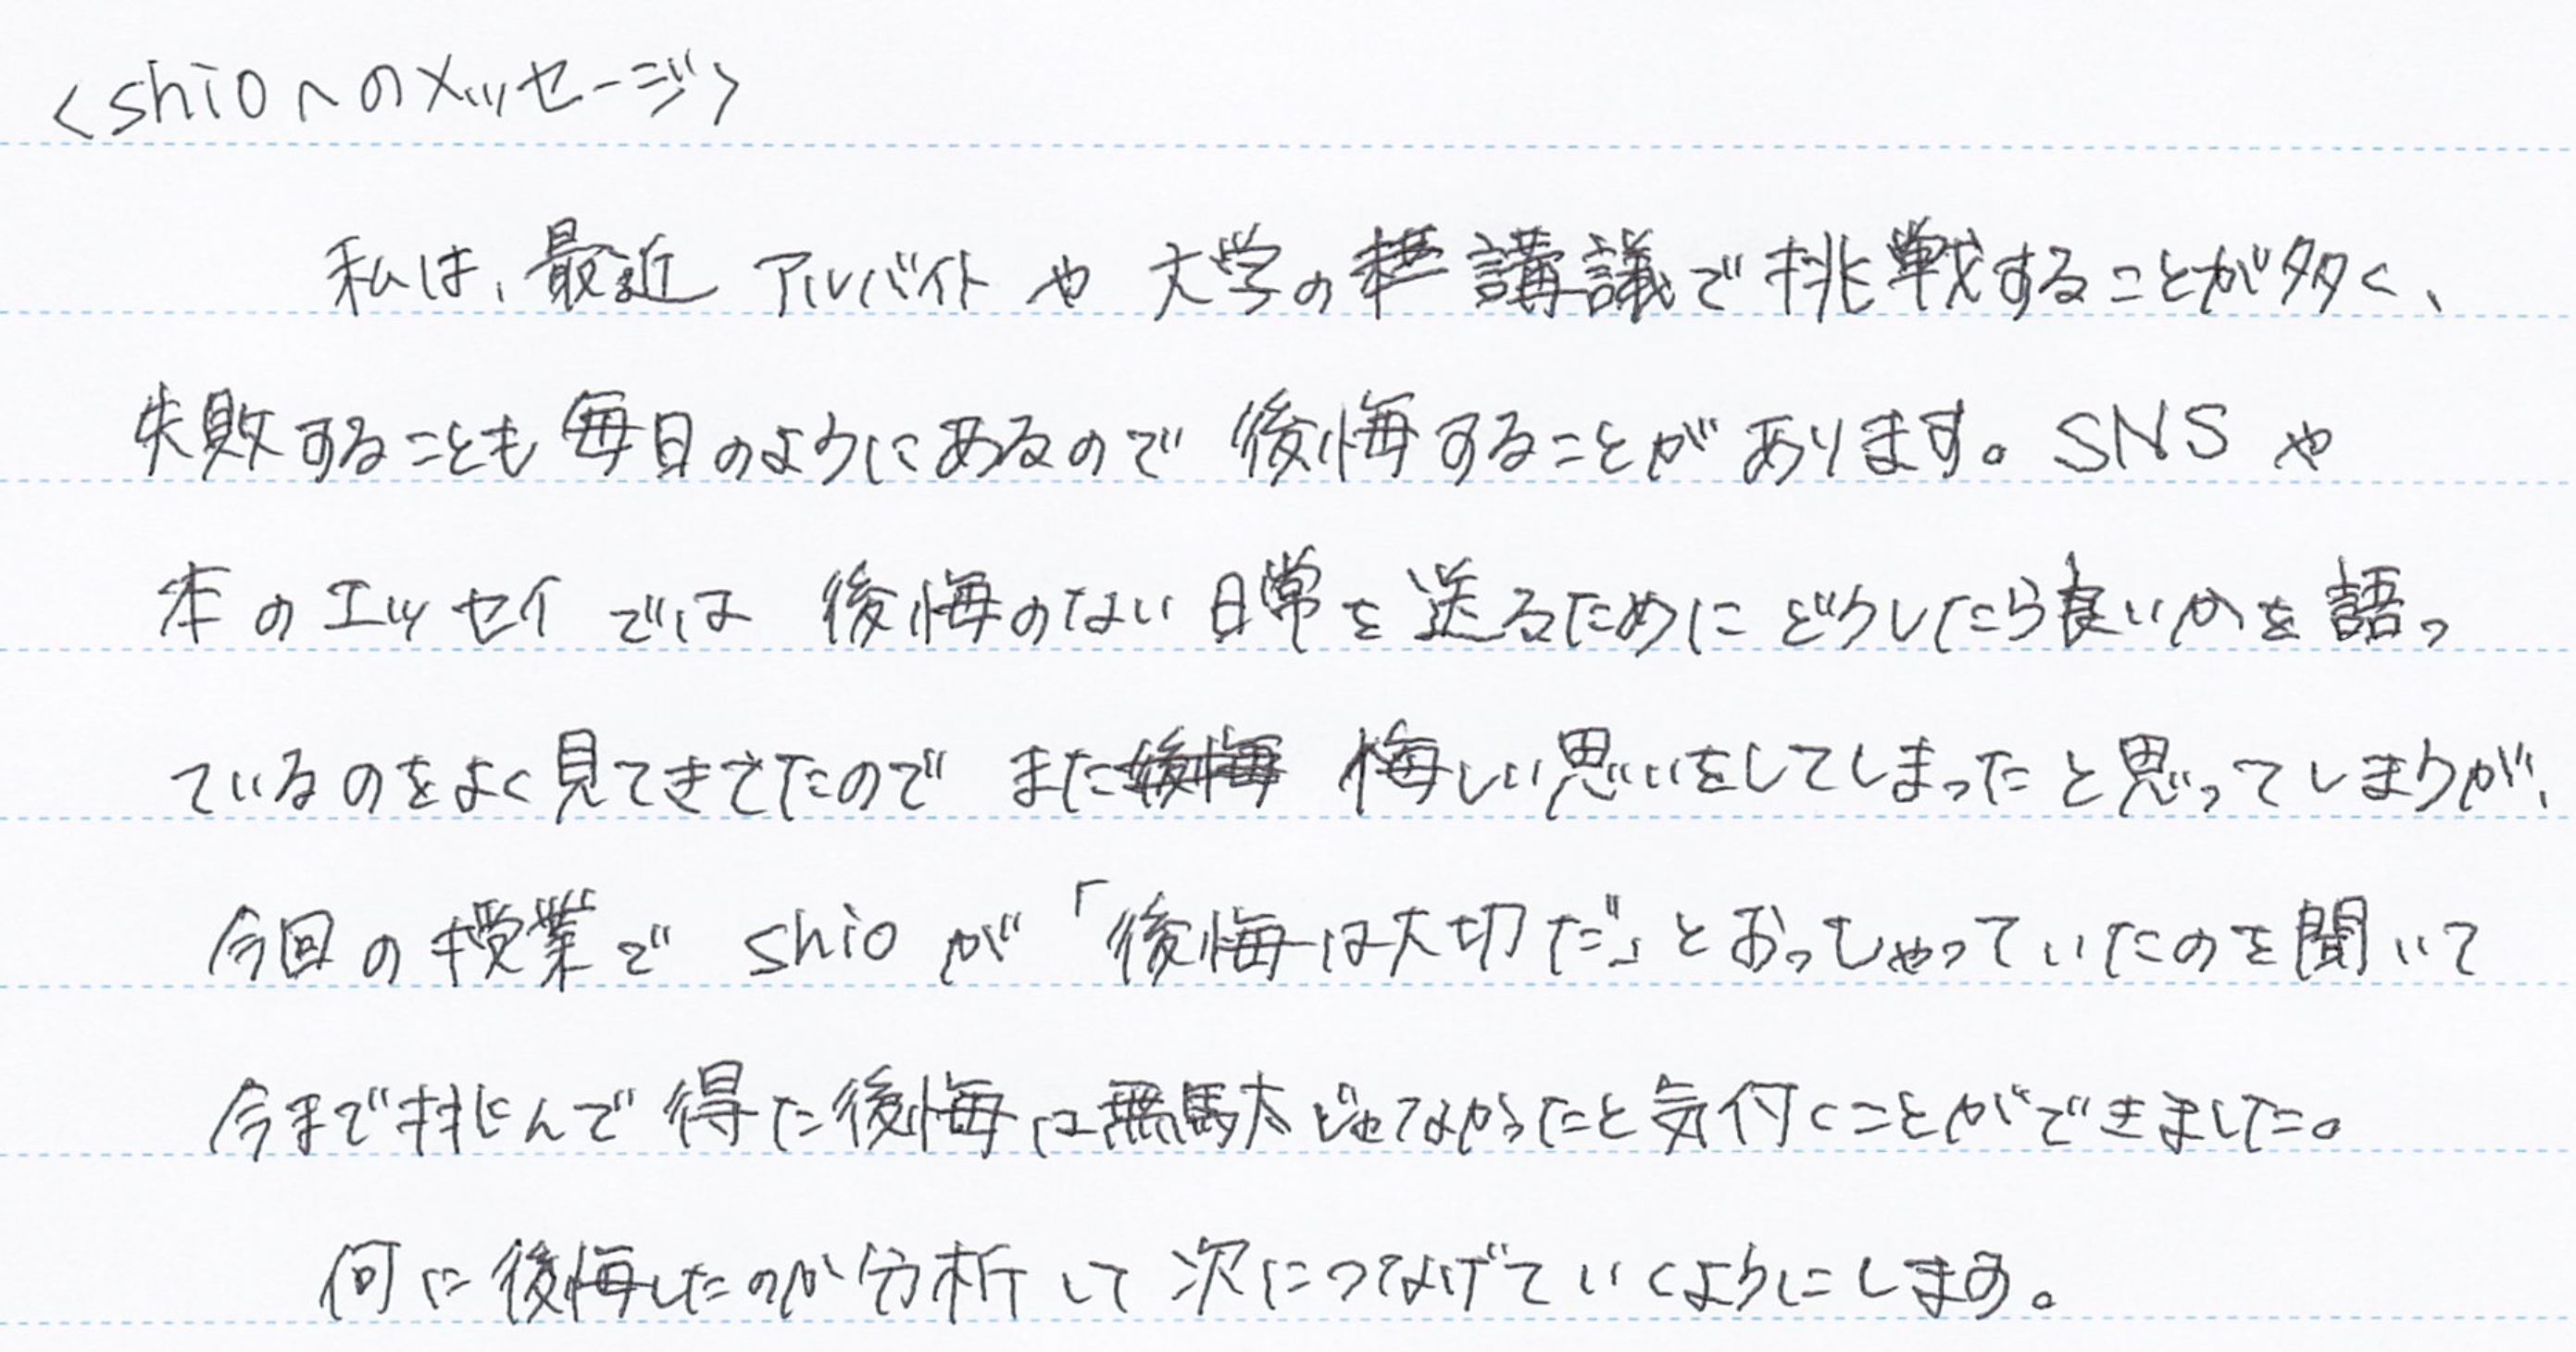 <shioへのメッセージ>
私は、最近アルバイトや大学の講議で挑戦することが多く、
失敗することも毎日のようにあるので後悔することがあります。SNSや
本のエッセイでは後悔のない日常を送るためにどうしたら良いかを語っ
ているのをよく見てきてたのでまた悔しい思いをしてしまったと思ってしまうが、
今回の授業でshioが「後悔は大切だ」とおっしゃっていたのを聞いて
今まで挑んで得た後悔は無駄じゃなかったと気付くことができました。
何に後悔したのか分析して次につなげていくようにします。